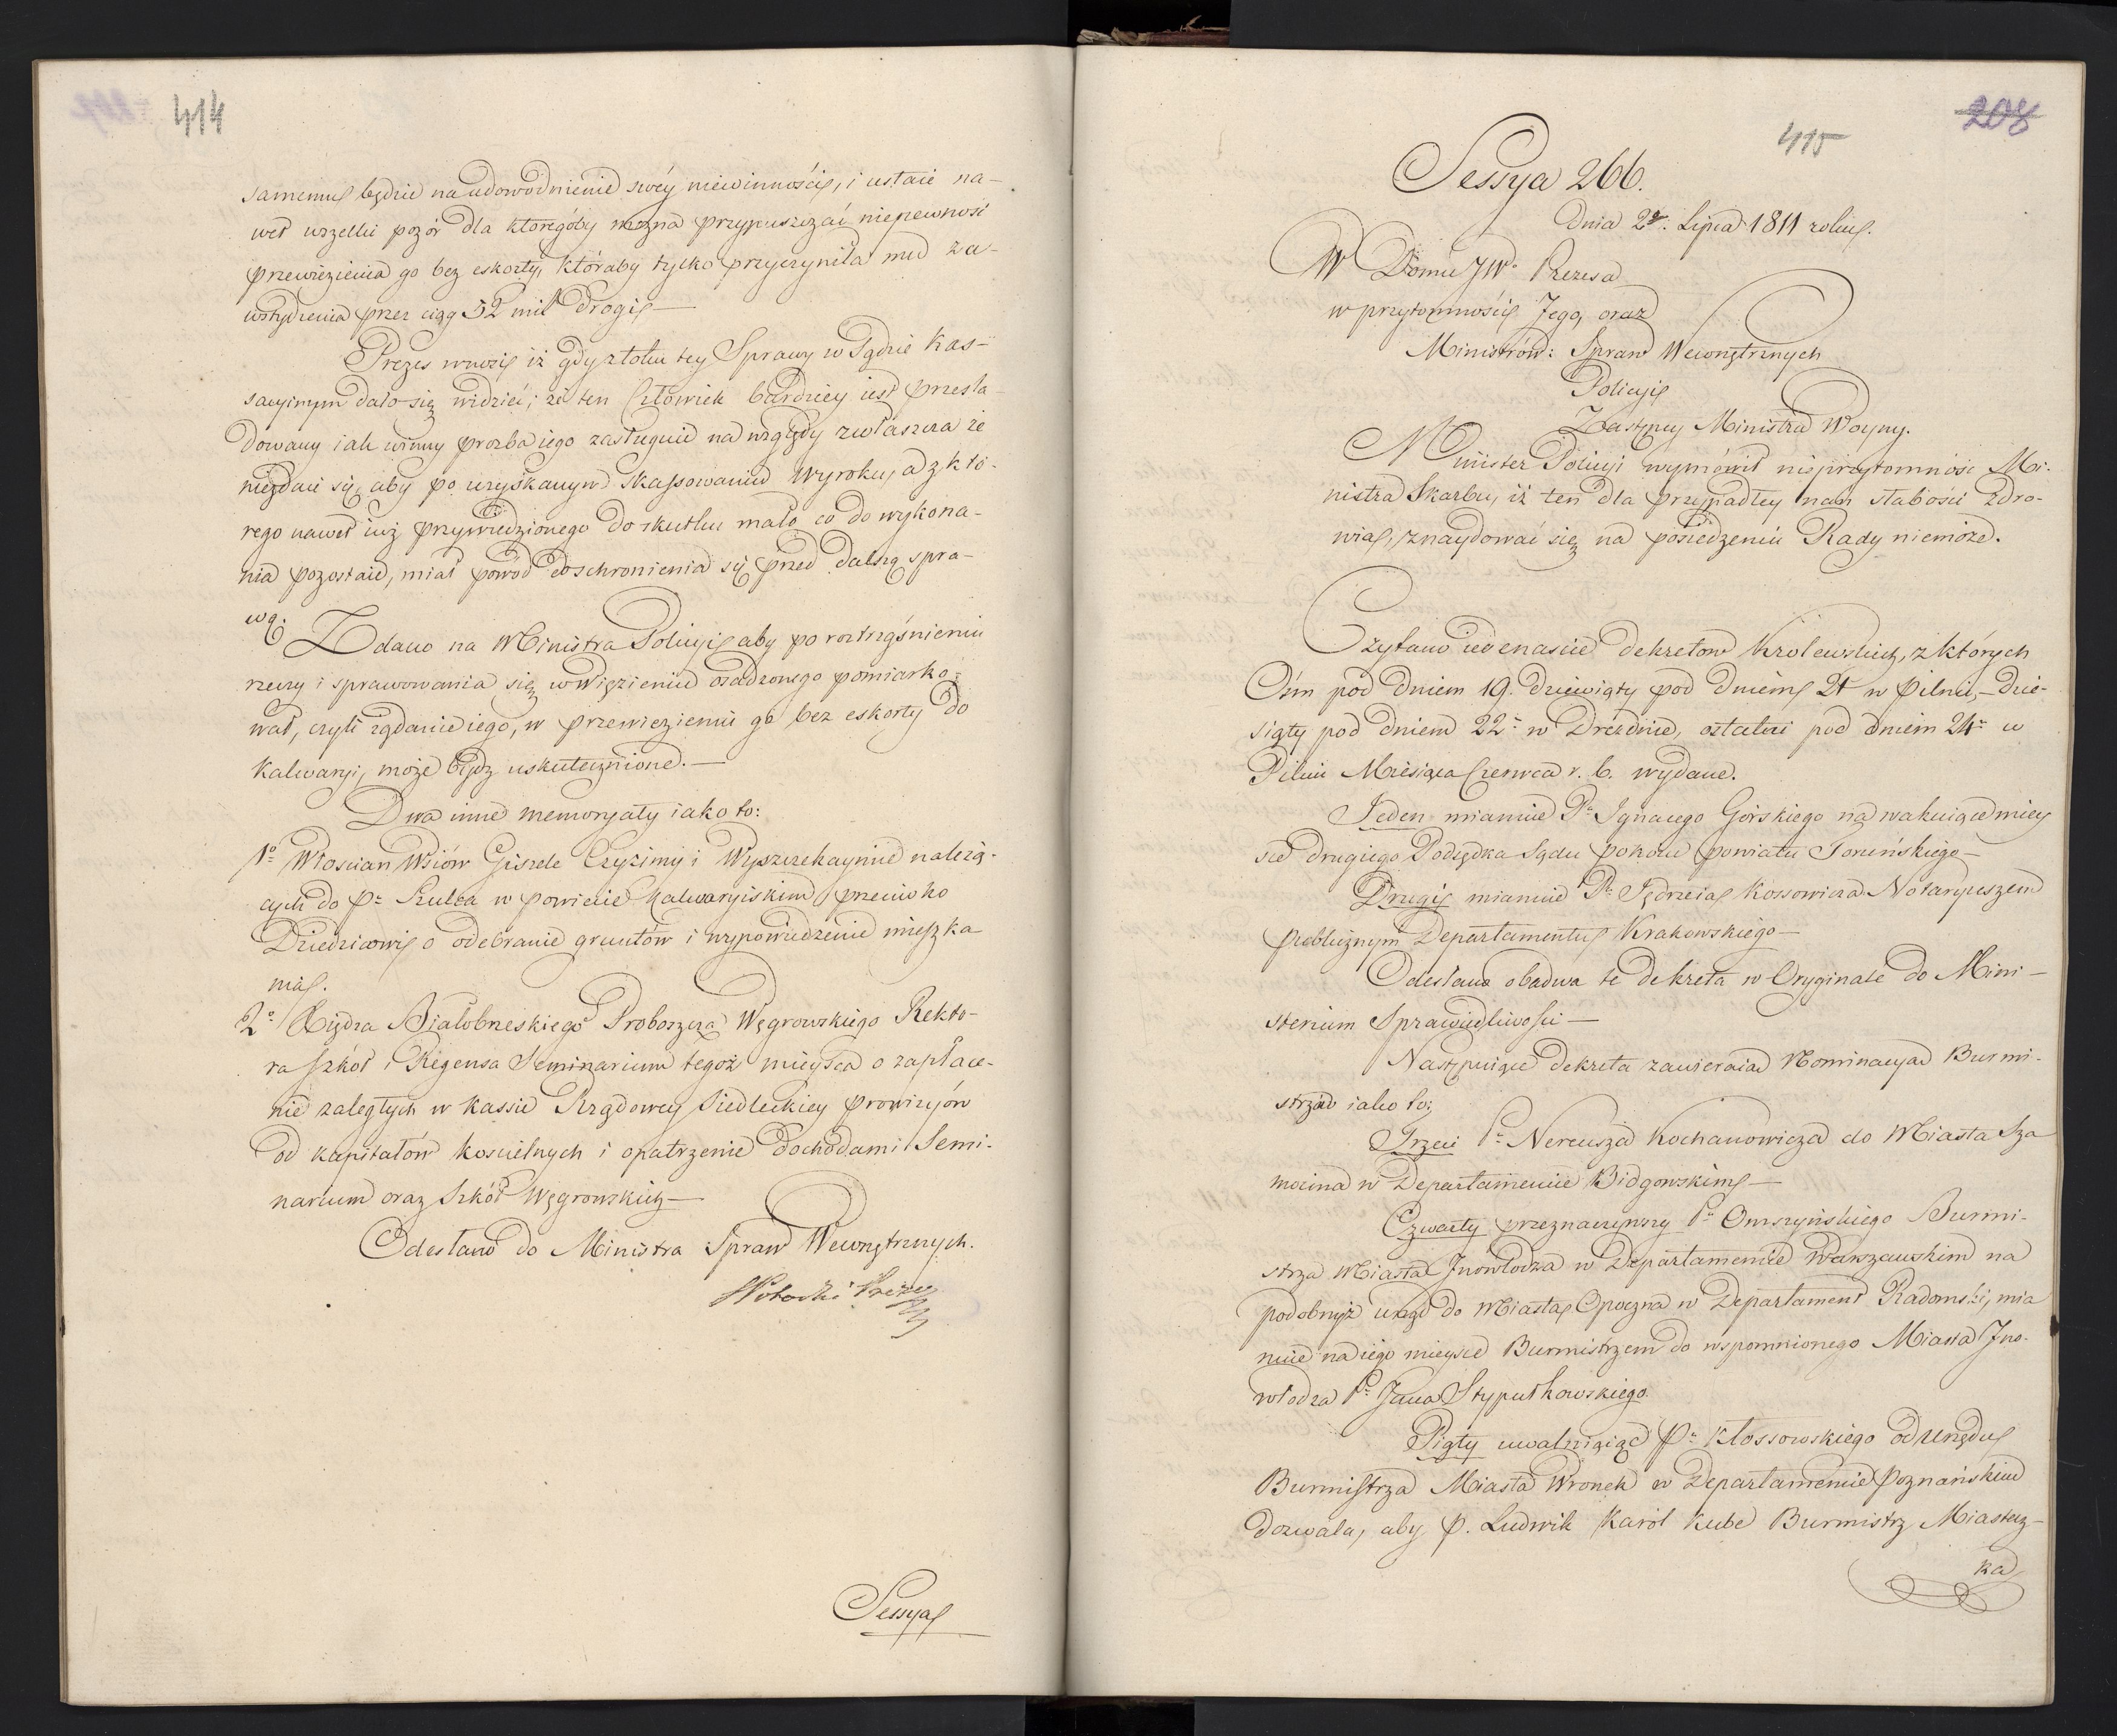 414
samemu będzie na udowodnienie swéy niewinności, i ustaie na-
wet wszelki pozór dla któregóby można przypuszczać niepewność
przewiezienia go bez eskorty, któraby tylko przyczyniła mu za-
wstydzenia przez ciąg 52 mil drogi —
Prezes wnosi iż gdy z toku tey Sprawy w Sądzie Kas-
sacyinym dało się widzieć, że ten Człowiek bardziey iest prześla-
dowany iak winny prozba iego zasługuie na względy zwłaszcza że
niezdaie się, aby po uzyskanym skassowaniu Wyroku, a z któ-
rego nawet iuż przywiedzionego do skutku mało co do wykona-
nia pozostaie, miał powód do schronienia się przed dalszą spra-
wą.
Zdano na Ministra Policyi aby po roztrząśnieniu
rzeczy i sprawowania się w więzieniu osadzonego pomiarko-
wał, czyli żądanie iego, w przewiezieniu go bez eskorty do
Kalwaryi, może bydz uskutecznione. —
Dwa inne memoryały iako to:
1o Włościan Wsiów Giszele Czyżimy i Wyszczekaynie należą-
cych do Pa Szulca w powiecie Kalwaryiskim przeciwko
Dziedzicowi o odebranie gruntów i wypowiedzenie mieszka
nia.
2o Xiędza Białobrzeskiego Proboszcza Węgrowskiego Rekto-
ra szkół i Regensa Seminarium tegoż mieysca o zapłace-
nie zaległych w kassie Rządowey Siedleckiey prowizyów
od kapitałów kościelnych i opatrzenie dochodami Semi-
narium oraz Szkół Węgrowskich —
Odesłano do Ministra Spraw Wewnętrznych.
Potocki Prezes
Sessya
208
415
Sessya 266.
Dnia 2go. Lipca 1811 roku.
W Domu JWo Prezesa
w przytomności Jego, oraz
Ministrów: Spraw Wewnętrznych
Policyi
Zastępcy Ministra Woyny.
Minister Policyi wymówił nieprzytomność Mi-
nistra Skarbu, iż ten dla przypadłey nań słabości zdro-
wia, znaydować się na posiedzeniu Rady niemoże.
Czytano iedenaście dekretów Królewskich, z których
Ośm pod dniem 19. dziewiąty pod dniem 21 w Pilnic, — dzie-
siąty pod dniem 22o w Dreźdnie, ostatni pod dniem 24o w
Pilnic Miesiąca Czerwca r. b. wydane.
Jeden mianuie Pa Ignacego Górskiego na wakuiące miey
sce drugiego Podsędka Sądu pokoiu powiatu Toruńskiego —
Drugi mianuie Pa Jędrzeia Kossowicza Notaryuszem
publicznym Departamentu Krakowskiego —
Odesłano obadwa te dekreta w Oryginale do Mini-
sterium Sprawiedliwości —
Następuiące dekreta zawieraią Nominacyie Burmi-
strzów iako to:
Trzeci Pa Nereusza Kochanowicza do Miasta Sza
mocina w Departamencie Bidgoskim —
Czwarty przeznaczywszy Pa Omszyńskiego Burmi-
strza Miasta Inowłodza w Departamencie Warszawskim na
podobnyż urząd do Miasta Opoczna w Departament Radomski, mia
nuie na iego mieysce Burmistrzem do wspomnionego Miasta Ino-
włodza Pa Jana Stypułkowskiego
Piąty uwalniaiąc Pa Kłossowskiego od urzędu
Burmistrza Miasta Wronek w Departamencie Poznańskim
dozwala, aby P. Ludwik Karol Kube Burmistrz Miastecz-
ka